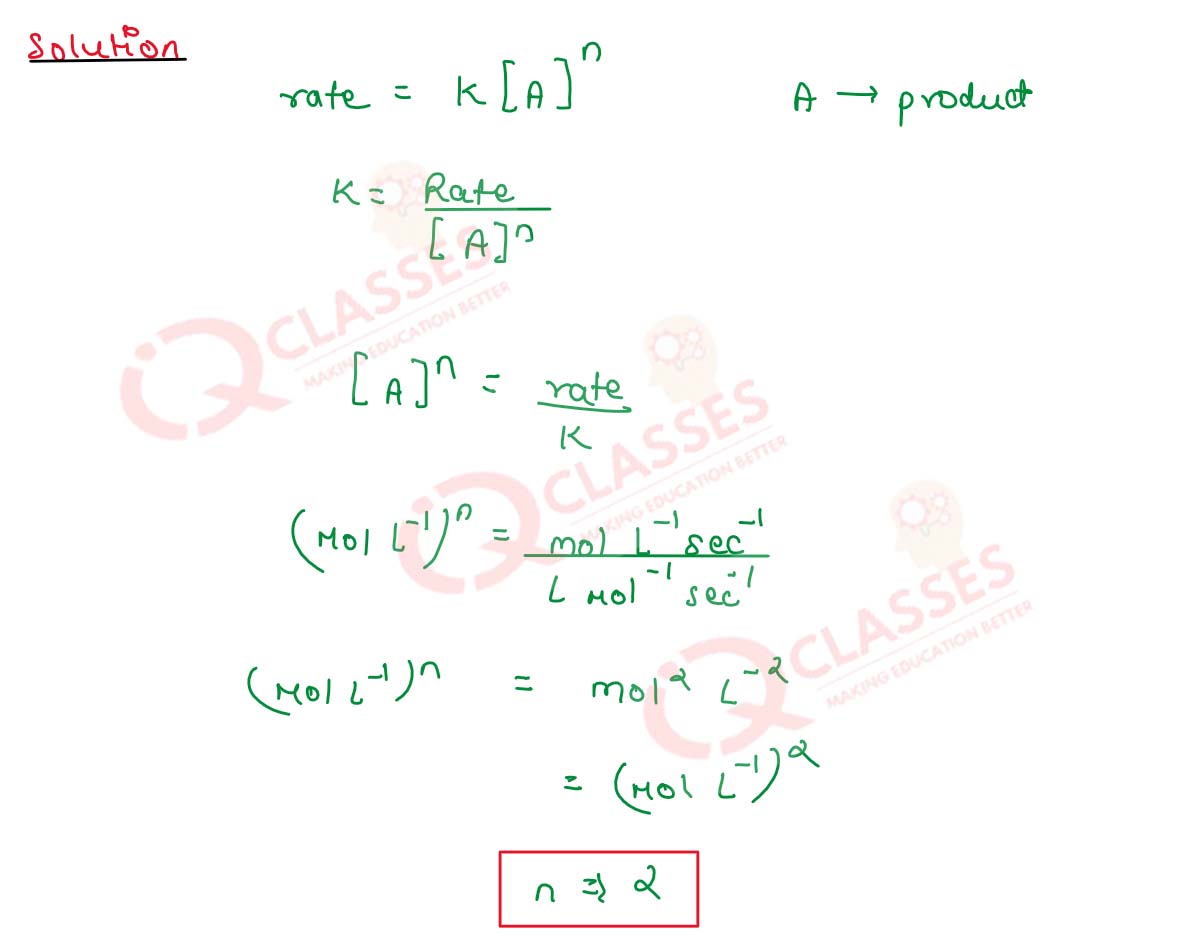 Solution
rate = K[A]^n A → product
K = Rate / [A]^n
[A]^n = rate / K
(Mol L^-1)^n = mol L^-1 sec^-1 / L Mol^-1 sec^-1
(Mol L^-1)^n = mol^2 L^-2
= (Mol L^-1)^2
n ⇒ 2
IQ CLASSES
MAKING EDUCATION BETTER
IQ CLASSES
MAKING EDUCATION BETTER
IQ CLASSES
MAKING EDUCATION BETTER